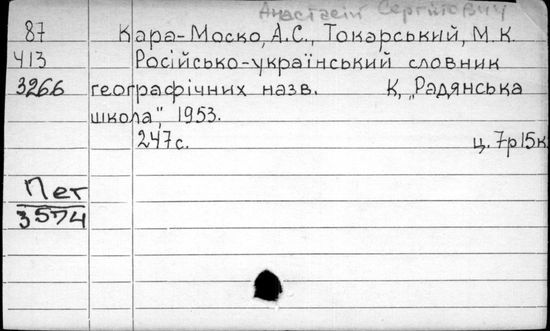 Анастасій Сергійович
87 Кара-Моско, А.С., Токарський, М.К.
413 Російсько-український словник
3266 географічних назв. К, „Радянська
школа", 1953.
247с. ц. 7р15к
Пет
3574